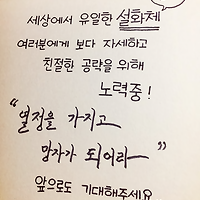 세상에서 유일한 설화제
여러분에게 보다 자세하고
친절한 공략을 위해
노력중!
"열정을 가지고
망자가 되어라ㅡ"
앞으로도 기대해주세요